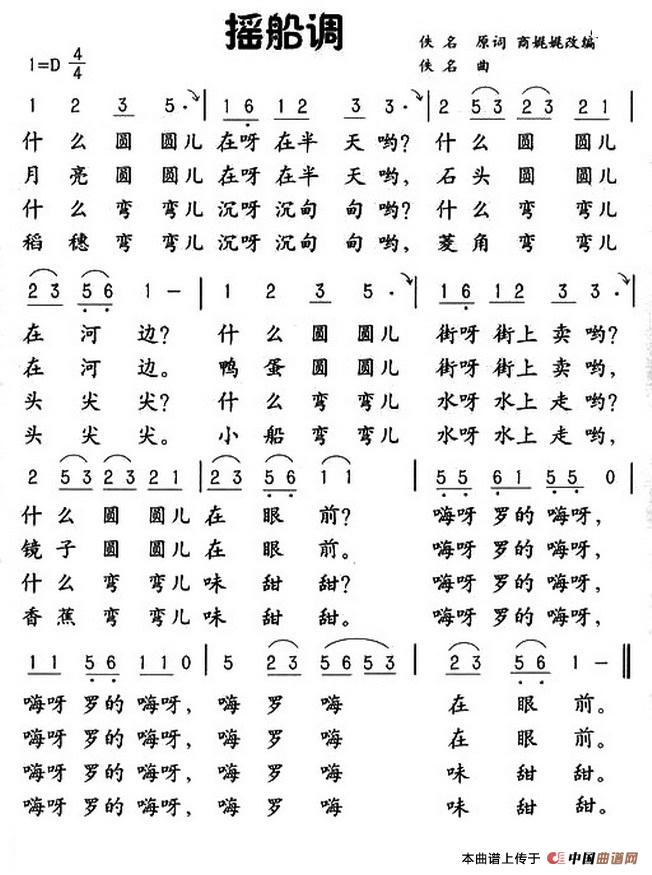 摇船调
佚名 原词 商娓娓改编
1=D 4/4
佚名 曲
1 2 3 5· | 1 6 1 2 3 3· | 2 5 3 2 3 2 1 |
什么圆圆儿在呀在半天哟？什么圆圆儿
月亮圆圆儿在呀在半天哟，石头圆圆儿
什么弯弯儿沉呀沉甸甸哟？什么弯弯儿
稻穗弯弯儿沉呀沉甸甸哟，菱角弯弯儿
2 3 5 6 1 － | 1 2 3 5· | 1 6 1 2 3 3· |
在河边？什么圆圆儿街呀街上卖哟？
在河边。鸭蛋圆圆儿街呀街上卖哟，
头尖尖？什么弯弯儿水呀水上走哟？
头尖尖。小船弯弯儿水呀水上走哟，
2 5 3 2 3 2 1 | 2 3 5 6 1 1 | 5 5 6 1 5 5 0 |
什么圆圆儿在眼前？嗨呀罗的嗨呀，
镜子圆圆儿在眼前。嗨呀罗的嗨呀，
什么弯弯儿味甜甜？嗨呀罗的嗨呀，
香蕉弯弯儿味甜甜。嗨呀罗的嗨呀，
1 1 5 6 1 1 0 | 5 2 3 5 6 5 3 | 2 3 5 6 1 － ‖
嗨呀罗的嗨呀，嗨罗嗨在眼前。
嗨呀罗的嗨呀，嗨罗嗨在眼前。
嗨呀罗的嗨呀，嗨罗嗨味甜甜。
嗨呀罗的嗨呀，嗨罗嗨味甜甜。
本曲谱上传于 中国曲谱网